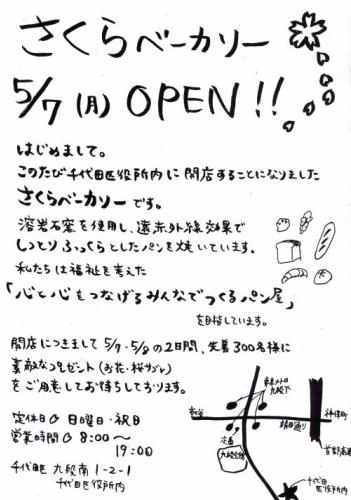 さくらベーカリー
5/7(月) OPEN!!
はじめまして。
このたび千代田区役所内に開店することになりました
さくらベーカリーです。
溶岩石窯を使用し、遠赤外線効果で
しっとりふっくらとしたパンを焼いています。
私たちは福祉を考えた
「心と心をつなげるみんなでつくるパン屋」
を目指しています。
開店につきまして5/7・5/8の2日間、先着300名様に
素敵なプレゼント(お花・桜サブレ)
をご用意してお待ちしております。
定休日◎ 日曜日・祝日
営業時間◎ 8:00〜
19:00
千代田区 九段南1-2-1
千代田区役所内
東京メトロ
九段下
靖国通り
神保町
首都高速
九段会館
千代田
区役所内